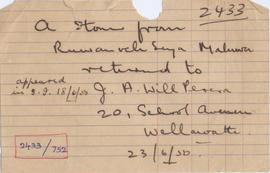 2433
A stone from
Ruwanveli Seya Maluwa
returned to
appeared
in S.O. 18/6/50
J. A. Will Perera
20, School Avenue
Wellawatte.
23/6/50.
2433/752